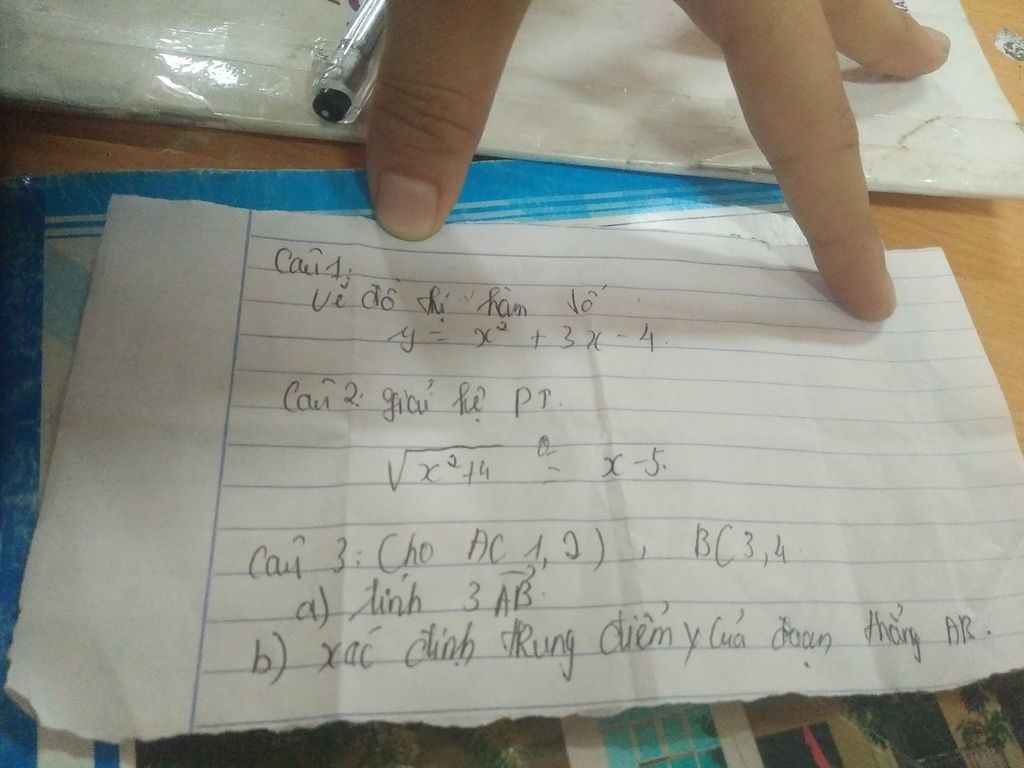 Câu 1:
Vẽ đồ thị hàm số
y = x² + 3x - 4.
Câu 2: giải hệ PT.
√x²+4 = x - 5.
Câu 3: Cho A( 1, 2 ) , B( 3, 4
a) tính 3 AB.
b) xác định trung điểm y của đoạn thẳng AB.